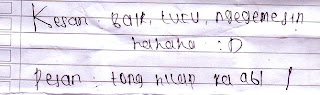 Kesan : Baik, lucu, ngegemesin
hahaha :D
Pesan : tong hilap ka abi !